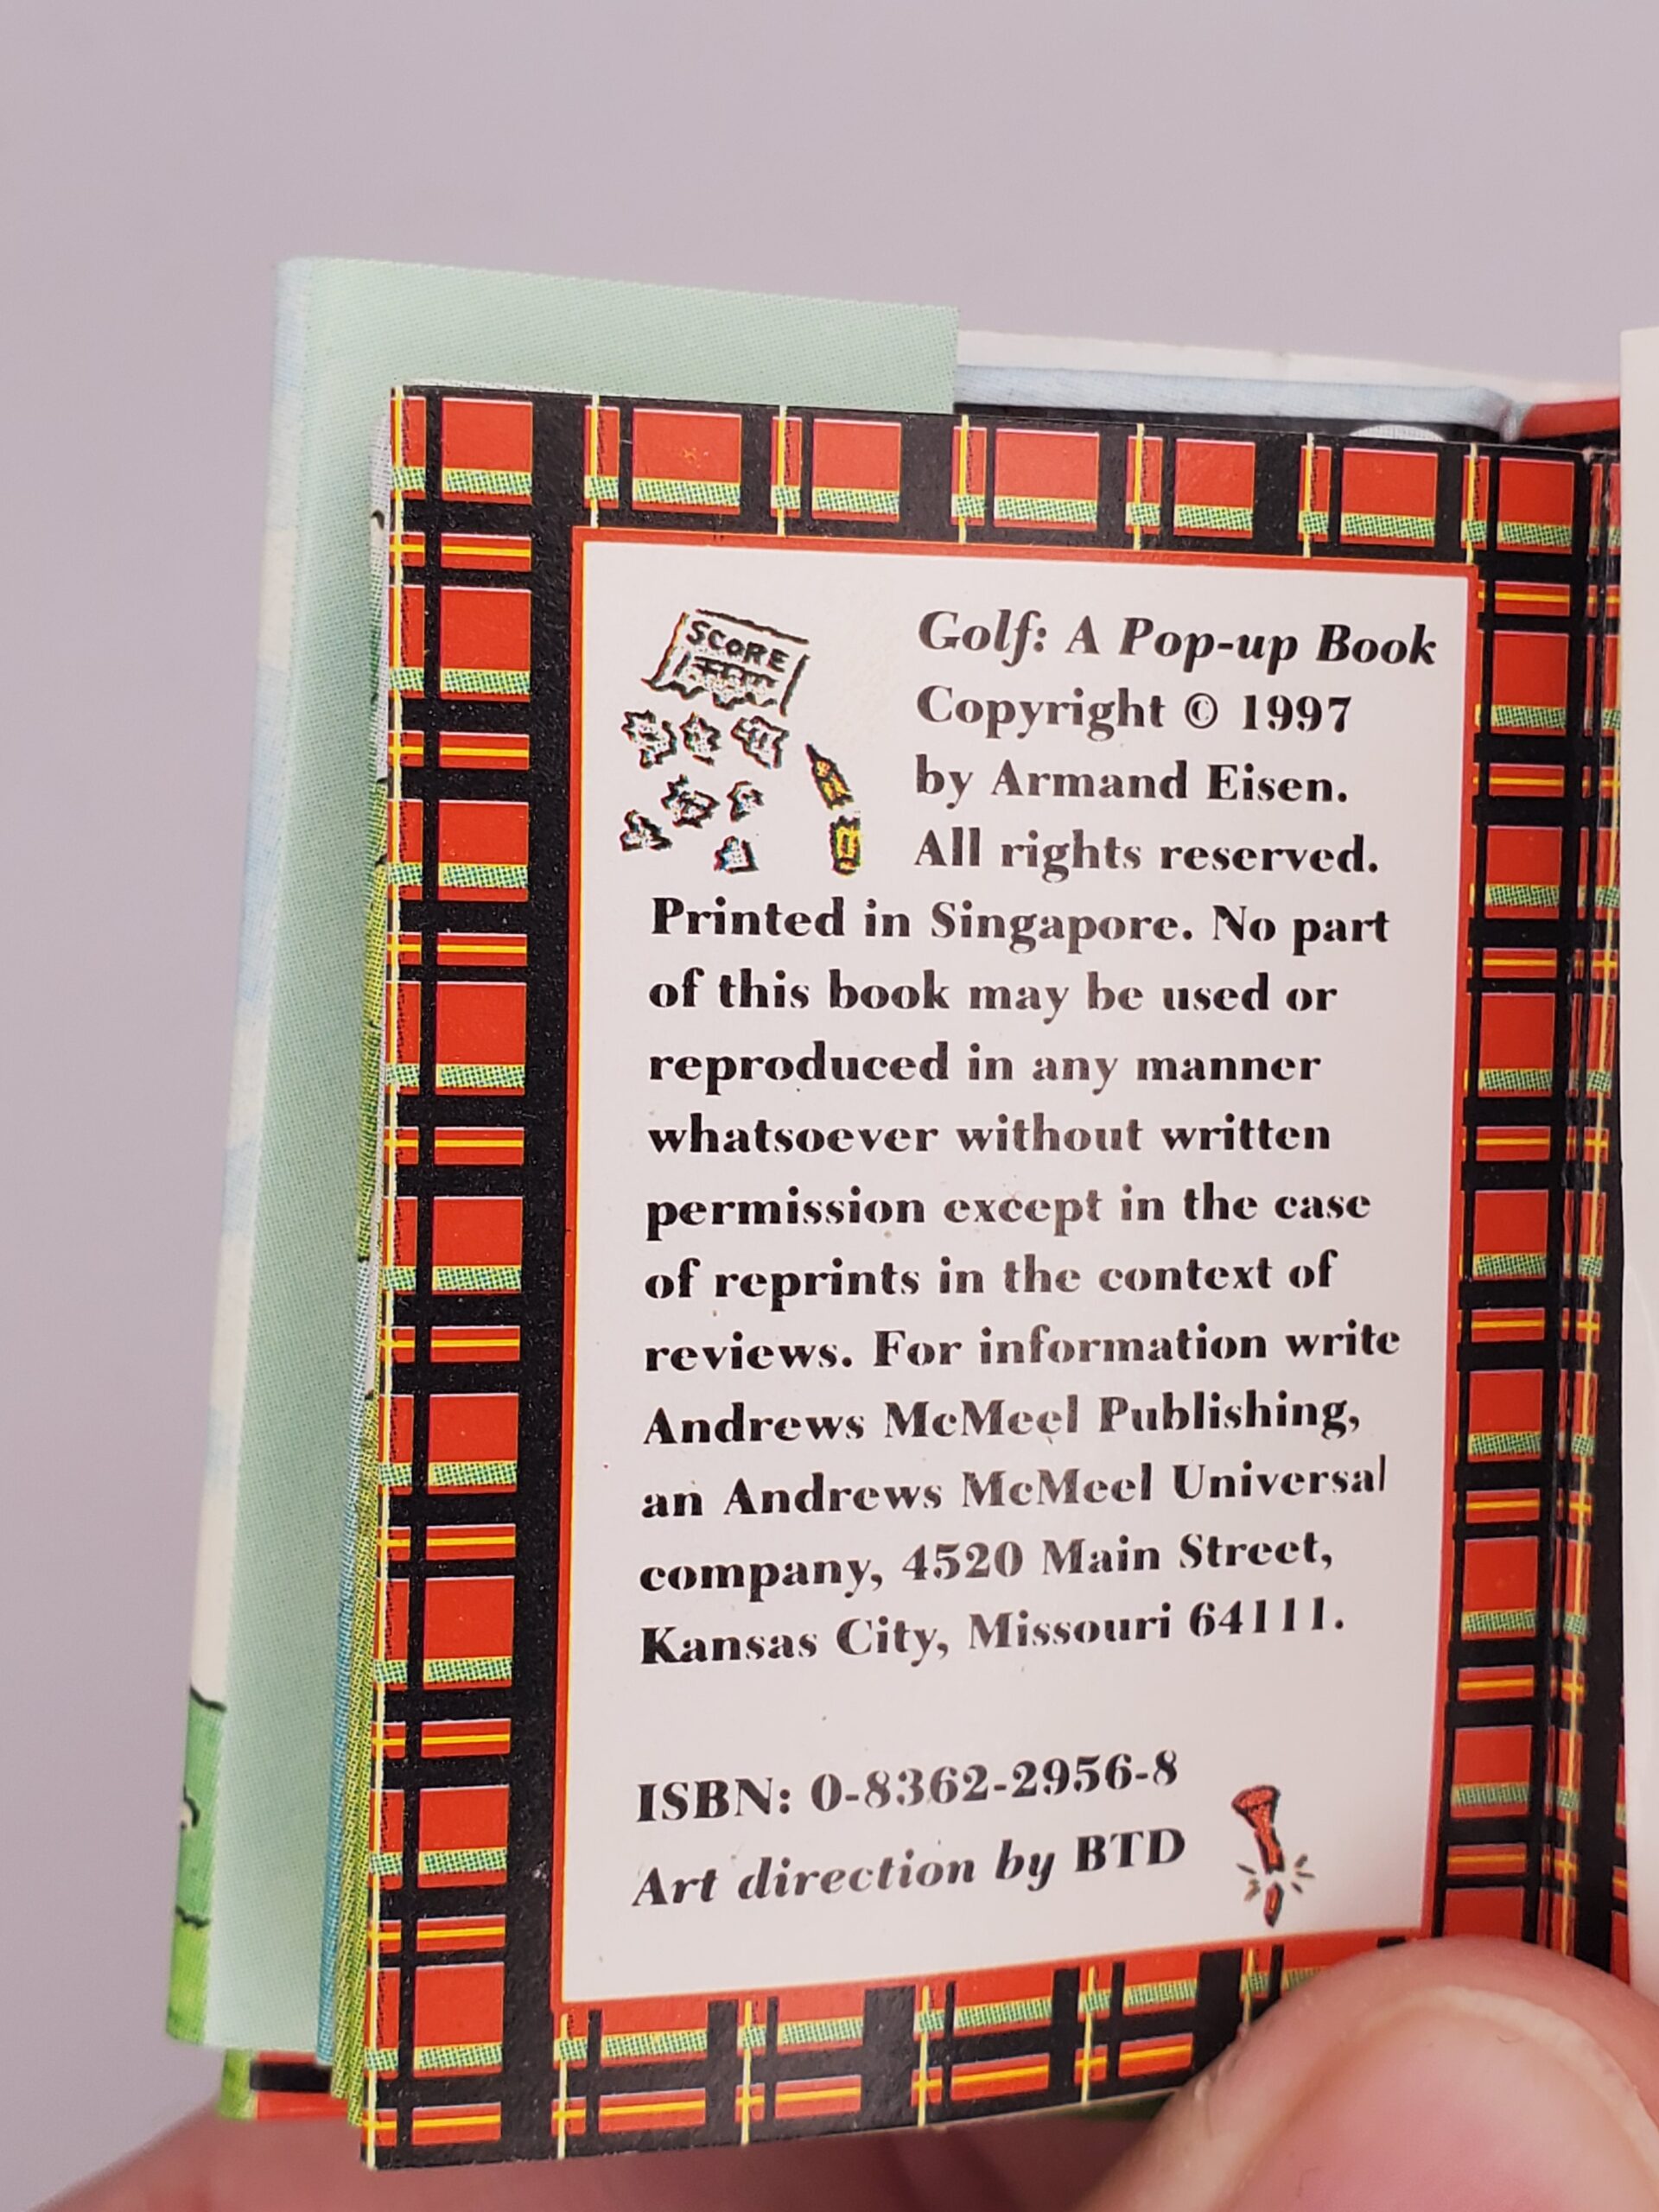 SCORE
Golf: A Pop-up Book
Copyright © 1997
by Armand Eisen.
All rights reserved.
Printed in Singapore. No part
of this book may be used or
reproduced in any manner
whatsoever without written
permission except in the case
of reprints in the context of
reviews. For information write
Andrews McMeel Publishing,
an Andrews McMeel Universal
company, 4520 Main Street,
Kansas City, Missouri 64111.
ISBN: 0-8362-2956-8
Art direction by BTD